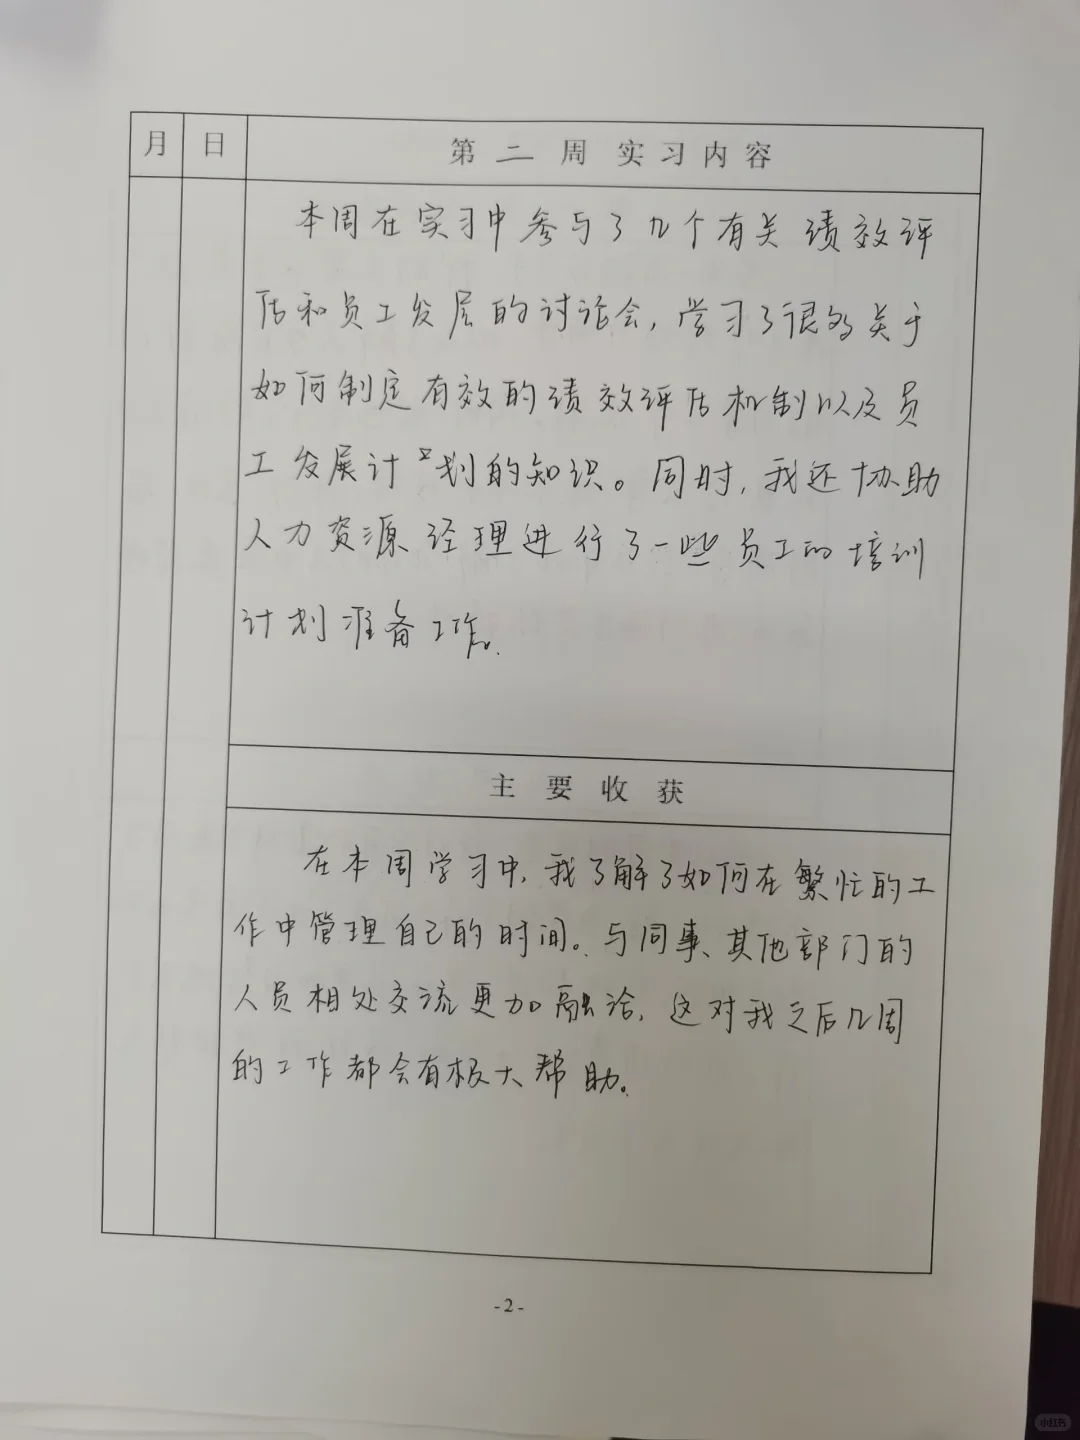 月 日 第二周实习内容
本周在实习中参与了几个有关绩效评
估和员工发展的讨论会，学习了很多关于
如何制定有效的绩效评估机制以及员
工发展计划的知识。同时，我还协助
人力资源经理进行了一些员工的培训
计划准备工作。
主要收获
在本周学习中，我了解了如何在繁忙的工
作中管理自己的时间。与同事、其他部门的
人员相处交流更加融洽，这对我之后几周
的工作都会有极大帮助。
-2-
小红书